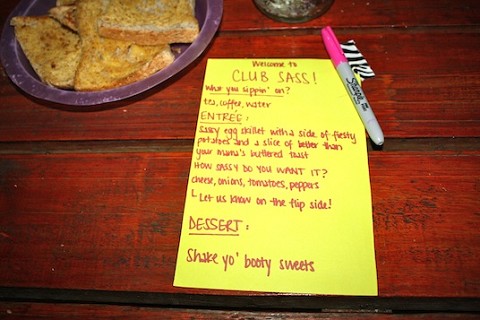 Welcome to
CLUB SASS!
What you sippin' on?
tea, coffee, water
ENTREE:
Sassy egg skillet with a side of fiesty
potatoes and a slice of better than
your mama's buttered toast
HOW SASSY DO YOU WANT IT?
cheese, onions, tomatoes, peppers
Let us know on the flip side!
DESSERT:
Shake yo' booty sweets
Sharpie